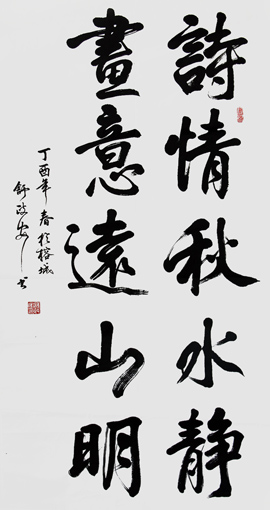 詩情秋水静
畫意遠山明
丁酉年春於榕城
舒政安书